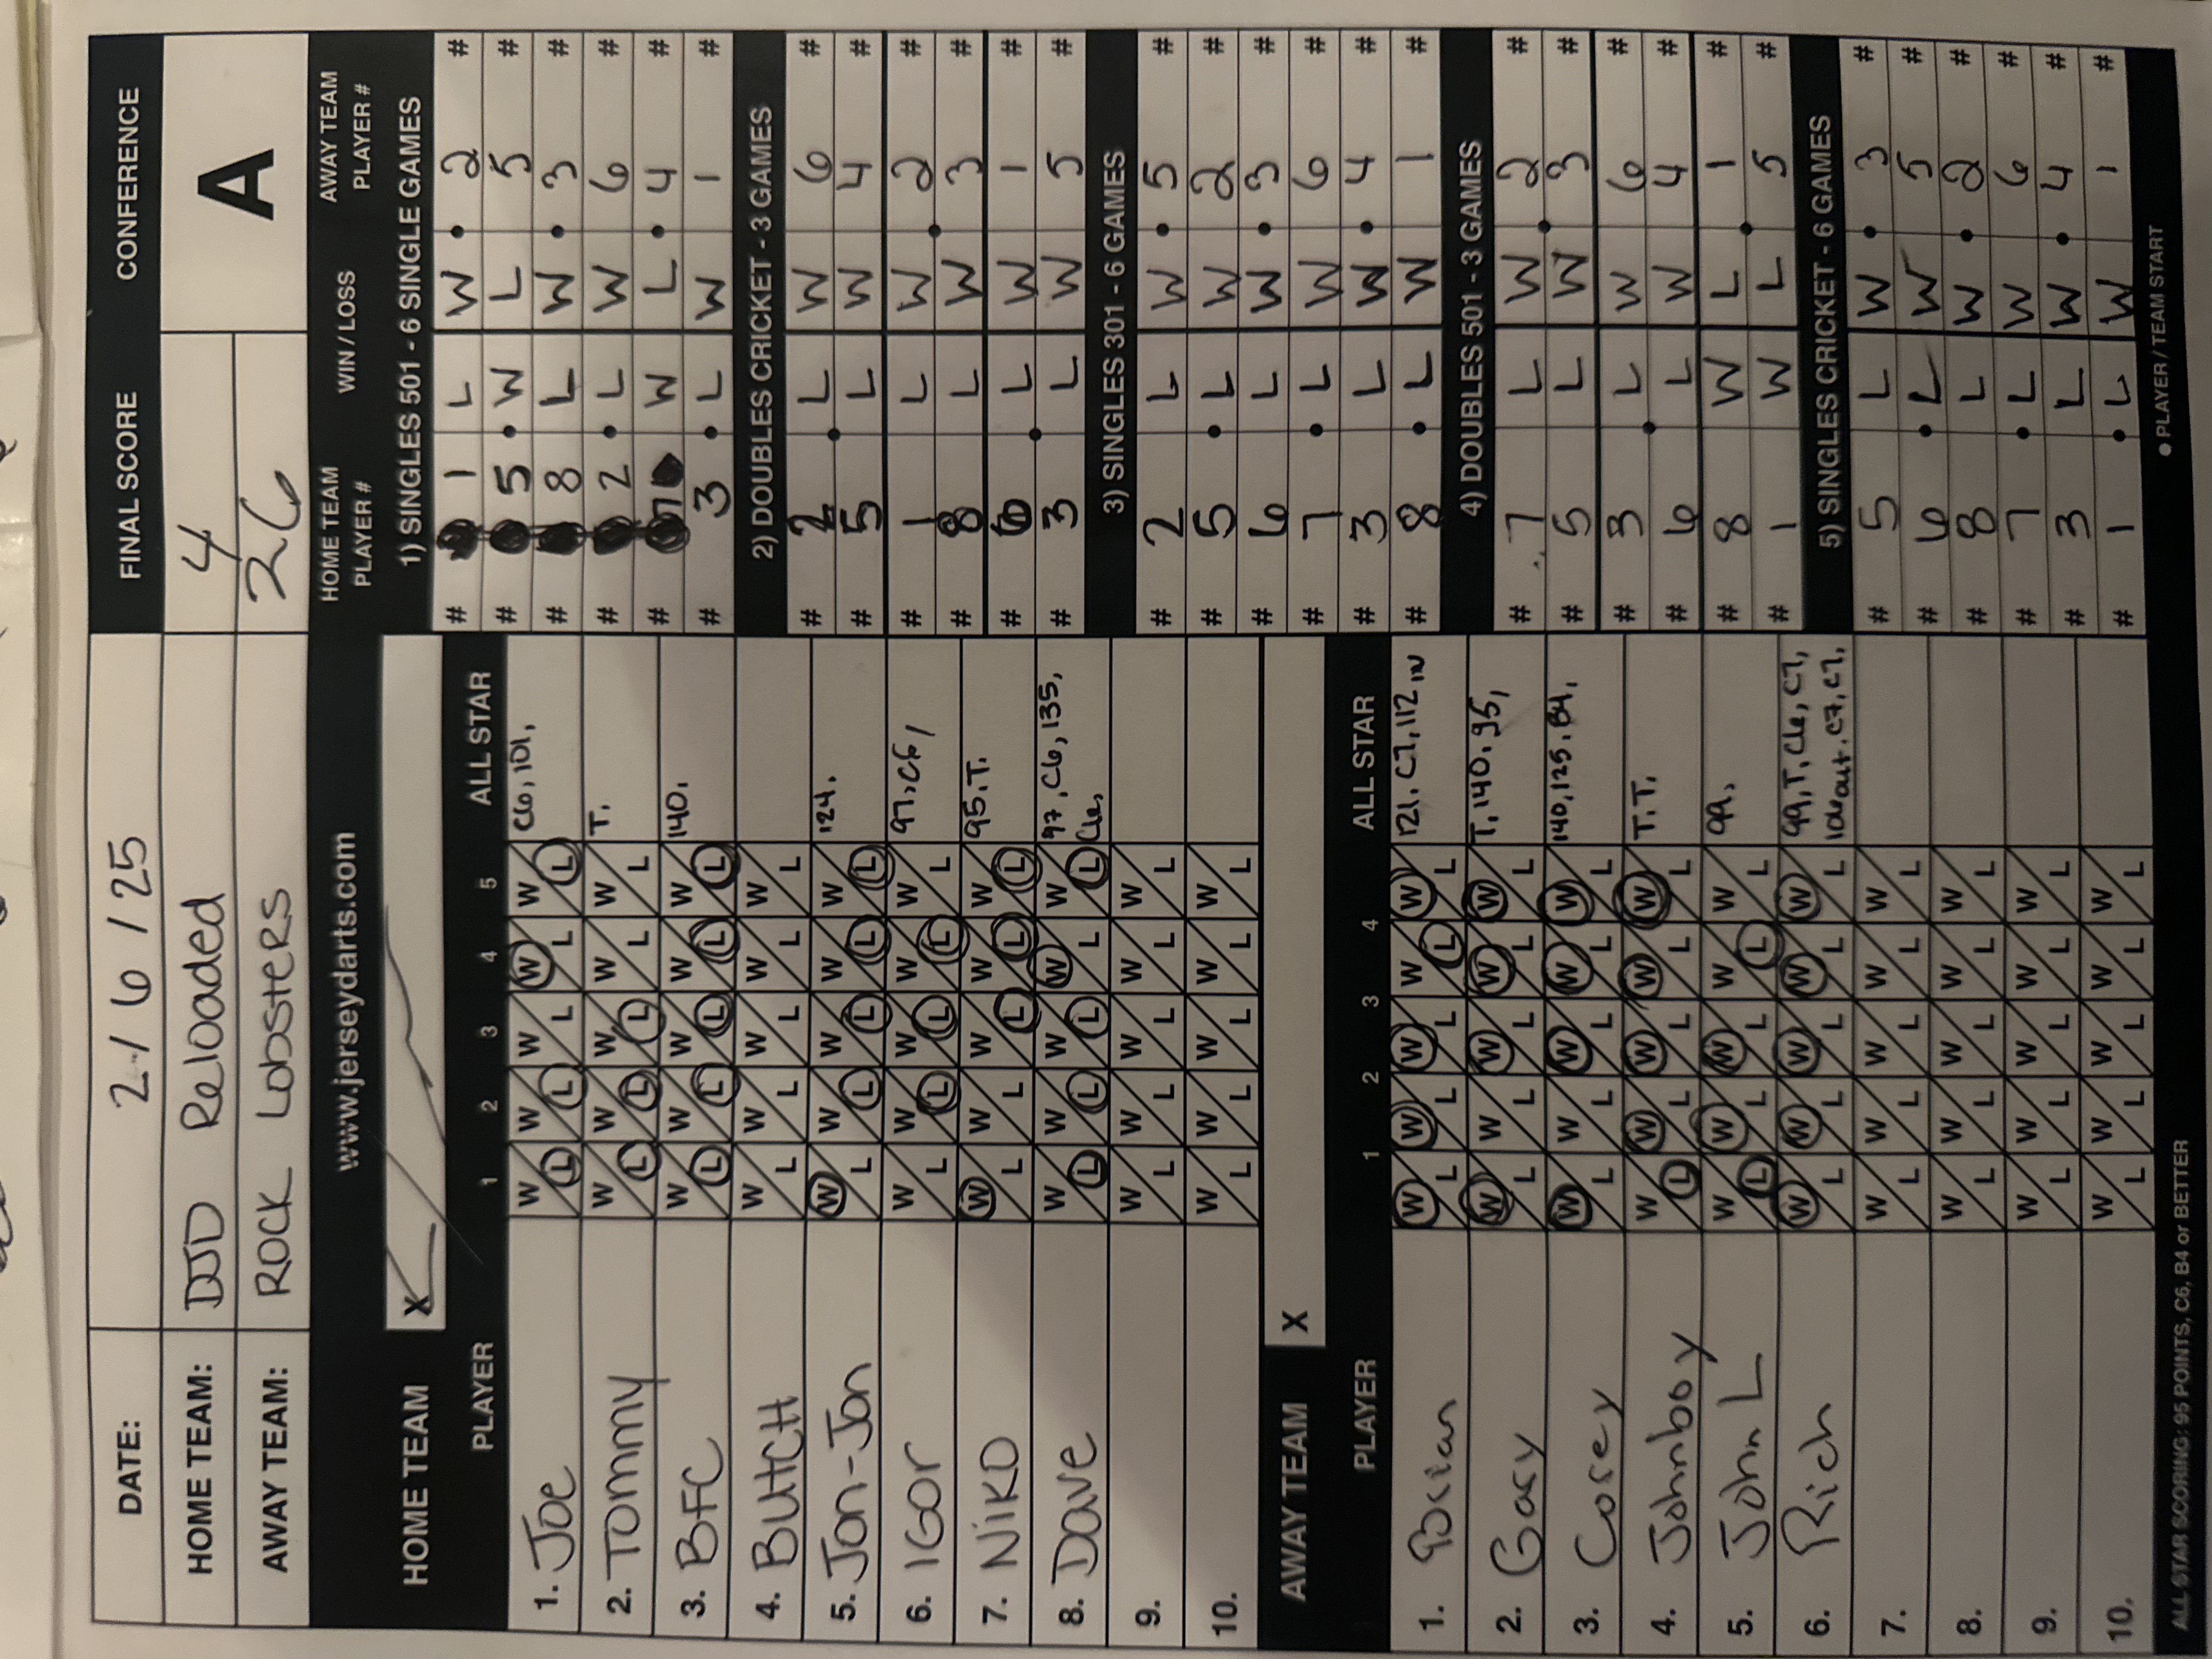 DATE: 2/6/25 FINAL SCORE CONFERENCE
HOME TEAM: DJD Reloaded 4 A
AWAY TEAM: ROCK LobsteRS 26
www.jerseydarts.com
HOME TEAM X
PLAYER 1 2 3 4 5 ALL STAR
1. Joe W L W L W L W L W L C6, 101,
2. Tommy W L W L W L W L W L T.
3. BFC W L W L W L W L W L 140,
4. BUtCH W L W L W L W L W L
5. Jon-Jon W L W L W L W L W L 124.
6. IGor W L W L W L W L W L 97, C6,
7. NiKO W L W L W L W L W L 95, T.
8. Dave W L W L W L W L W L 97, C6, 135,
9. W L W L W L W L W L
10. W L W L W L W L W L
AWAY TEAM X
PLAYER 1 2 3 4 ALL STAR
1. Brian W L W L W L W L W L 121, C7, 112 IN
2. Gary W L W L W L W L W L T, 140, 95,
3. Corey W L W L W L W L W L 140, 125, B4,
4. Johnboy W L W L W L W L W L T.T.
5. John L W L W L W L W L W L 99,
6. Rich W L W L W L W L W L 99, T, C6, C7,
out, C7, C7,
7. W L W L W L W L W L
8. W L W L W L W L W L
9. W L W L W L W L W L
10. W L W L W L W L W L
ALL STAR SCORING: 95 POINTS, C6, B4 or BETTER
HOME TEAM PLAYER # WIN / LOSS AWAY TEAM PLAYER #
1) SINGLES 501 - 6 SINGLE GAMES
# 1 L W • 2 #
# 5 • W L 5 #
# 8 L W • 3 #
# 2 • L W 6 #
# 7 W L • 4 #
# 3 • L W 1 #
2) DOUBLES CRICKET - 3 GAMES
# 2 • L W 6 #
# 5 L W 4 #
# 1 L W • 2 #
# 8 L W 3 #
# 6 • L W 1 #
# 3 L W 5 #
3) SINGLES 301 - 6 GAMES
# 2 L W • 5 #
# 5 • L W 2 #
# 6 L W • 3 #
# 7 • L W 6 #
# 3 L W • 4 #
# 8 • L W 1 #
4) DOUBLES 501 - 3 GAMES
# 7 L W • 2 #
# 5 L W 3 #
# 3 • L W 6 #
# 6 L W 4 #
# 8 W L • 1 #
# 1 W L 5 #
5) SINGLES CRICKET - 6 GAMES
# 5 L W • 3 #
# 6 • L W 5 #
# 8 L W • 2 #
# 7 • L W 6 #
# 3 L W • 4 #
# 1 • L W 1 #
• PLAYER / TEAM START